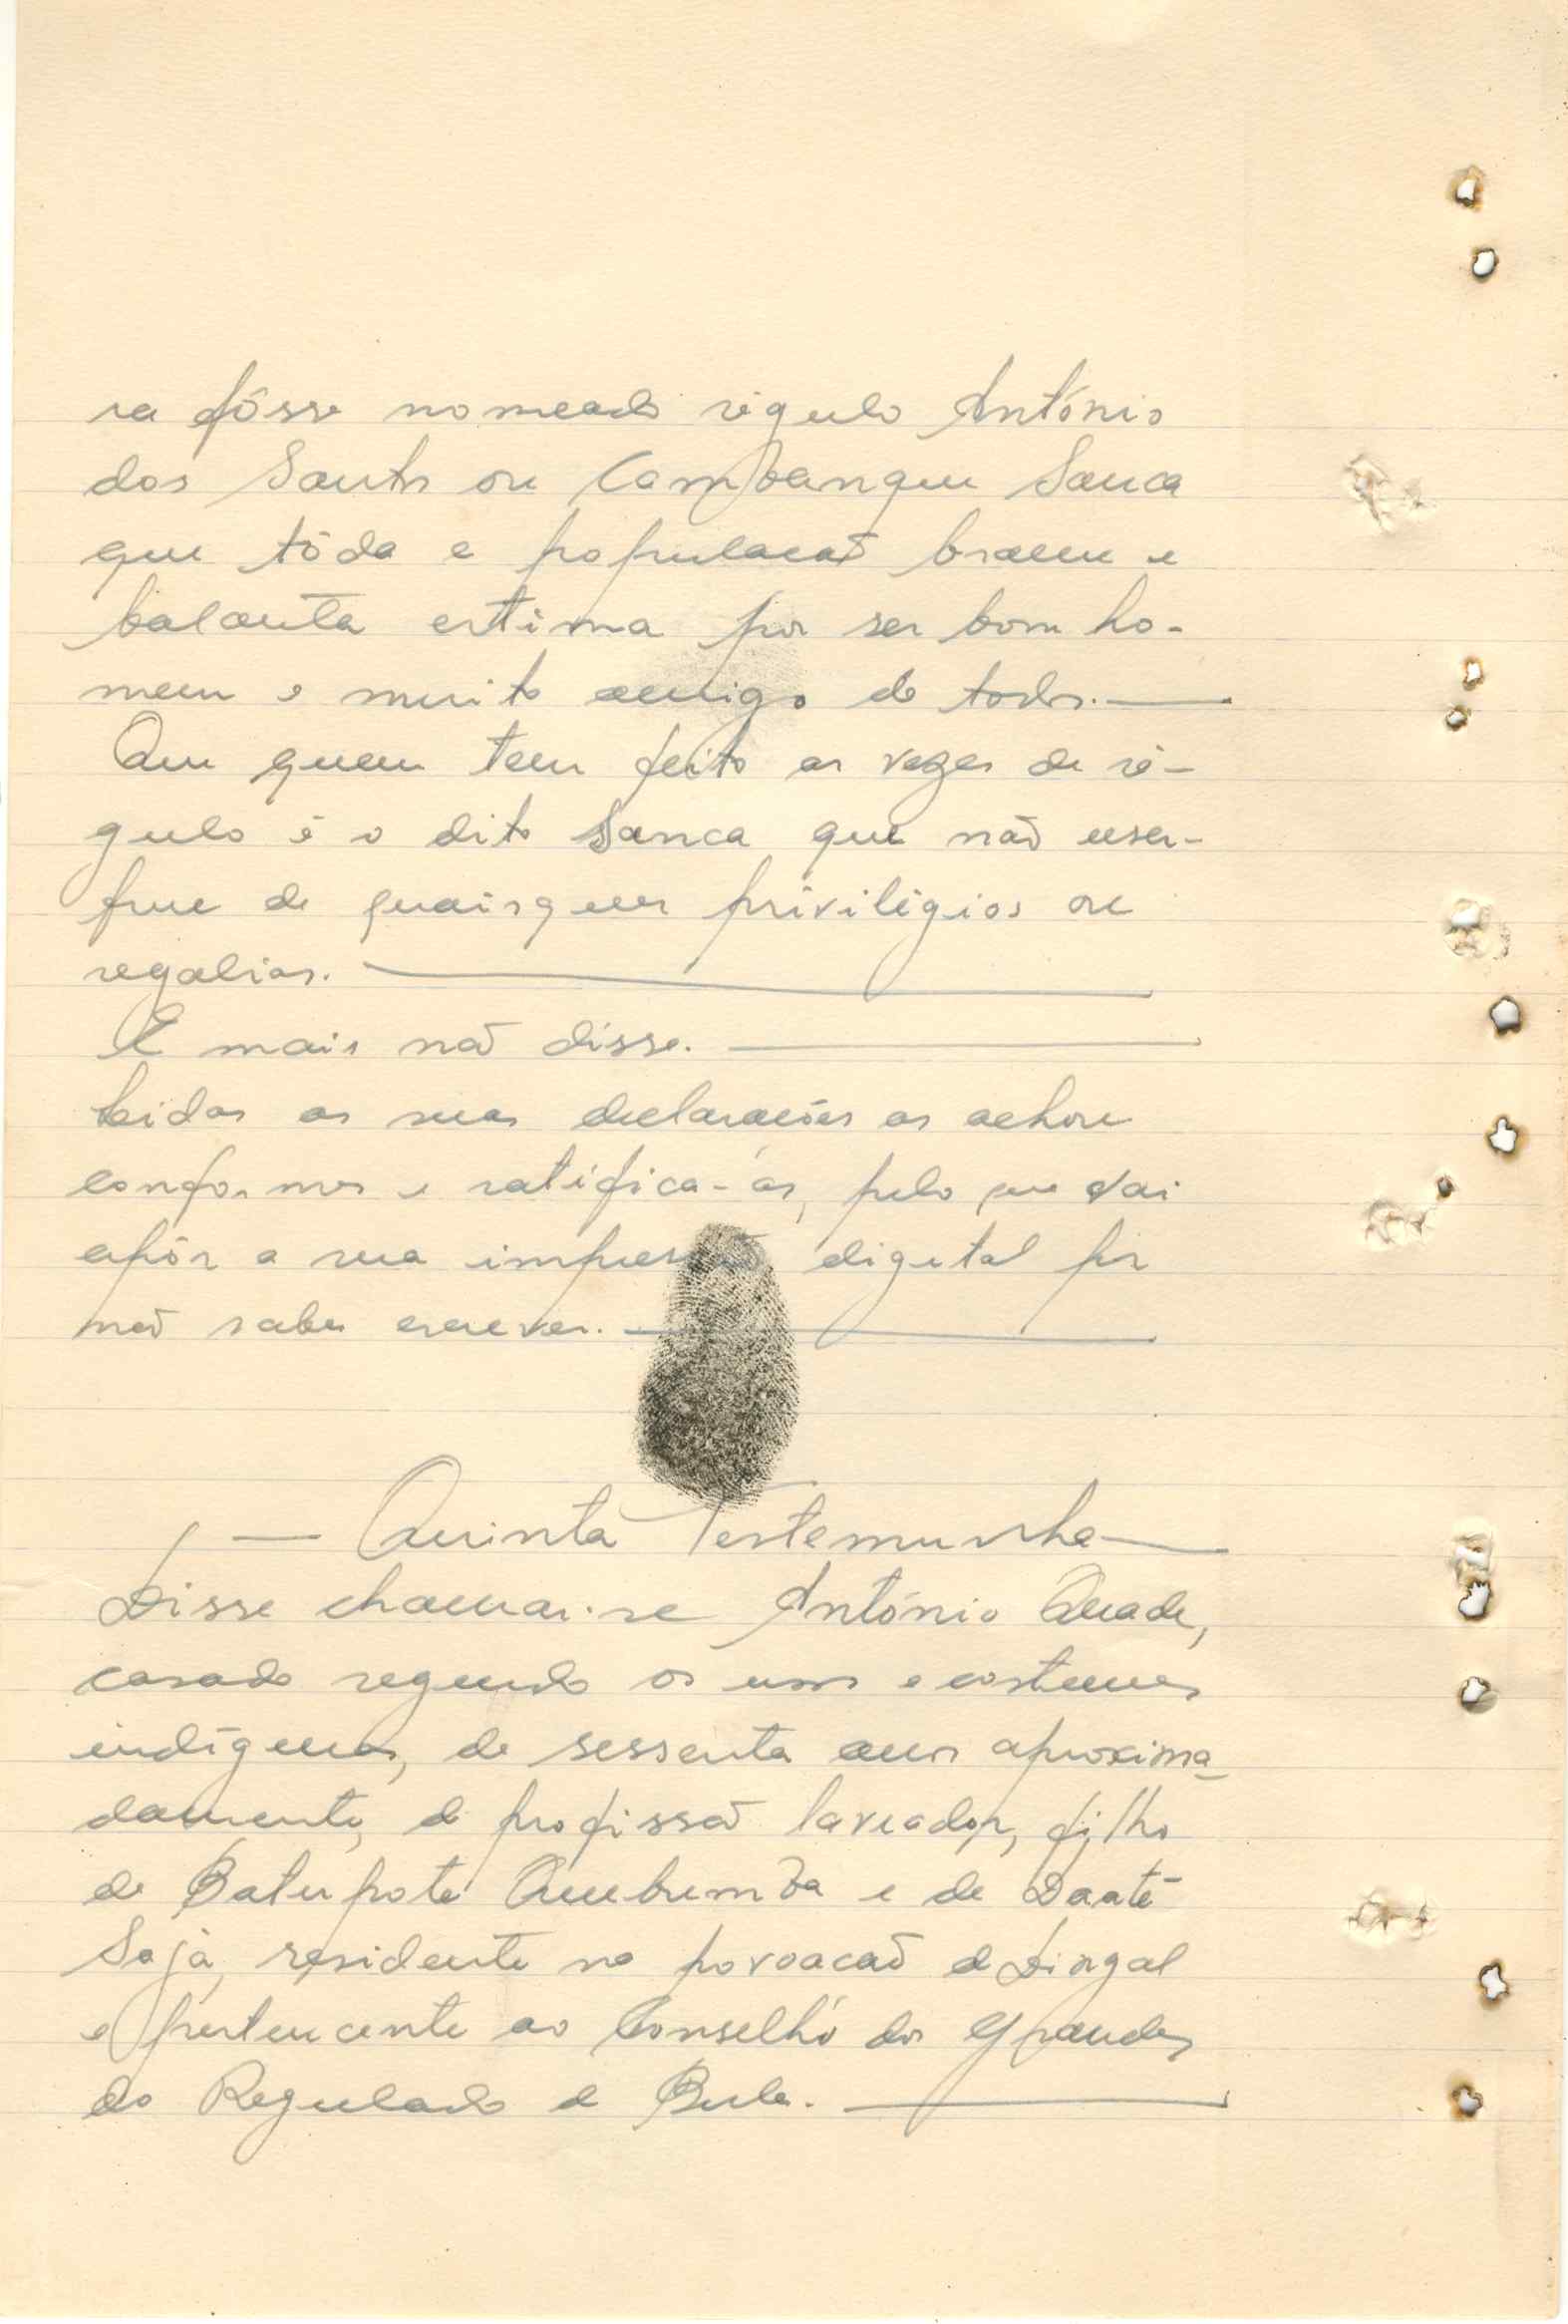 ra fôsse nomeado régulo António
dos Santos ou Cambanque Sanca
que tôda a população brame e
balanta estima por ser bom ho-
mem e muito amigo de todos.
Que quem tem feito as vezes de ré-
gulo é o dito Sanca que não usu-
frue de quaisquer priviligios ou
regalias.
E mais não disse.
Lidas as suas declarações as achou
conformes e ratifica-as, pelo que vai
apôr a sua impressão digital por
não saber escrever.
Quinta Testemunha
Disse chamar-se António Quade,
casado segundo os usos e costumes
indígenas, de sessenta anos aproxima-
damente, de profissão lavrador, filho
de e de Daaté
Sajà, residente na povoação de Dingal
e pertencente ao Conselho dos Grandes
do Regulado de Bula.